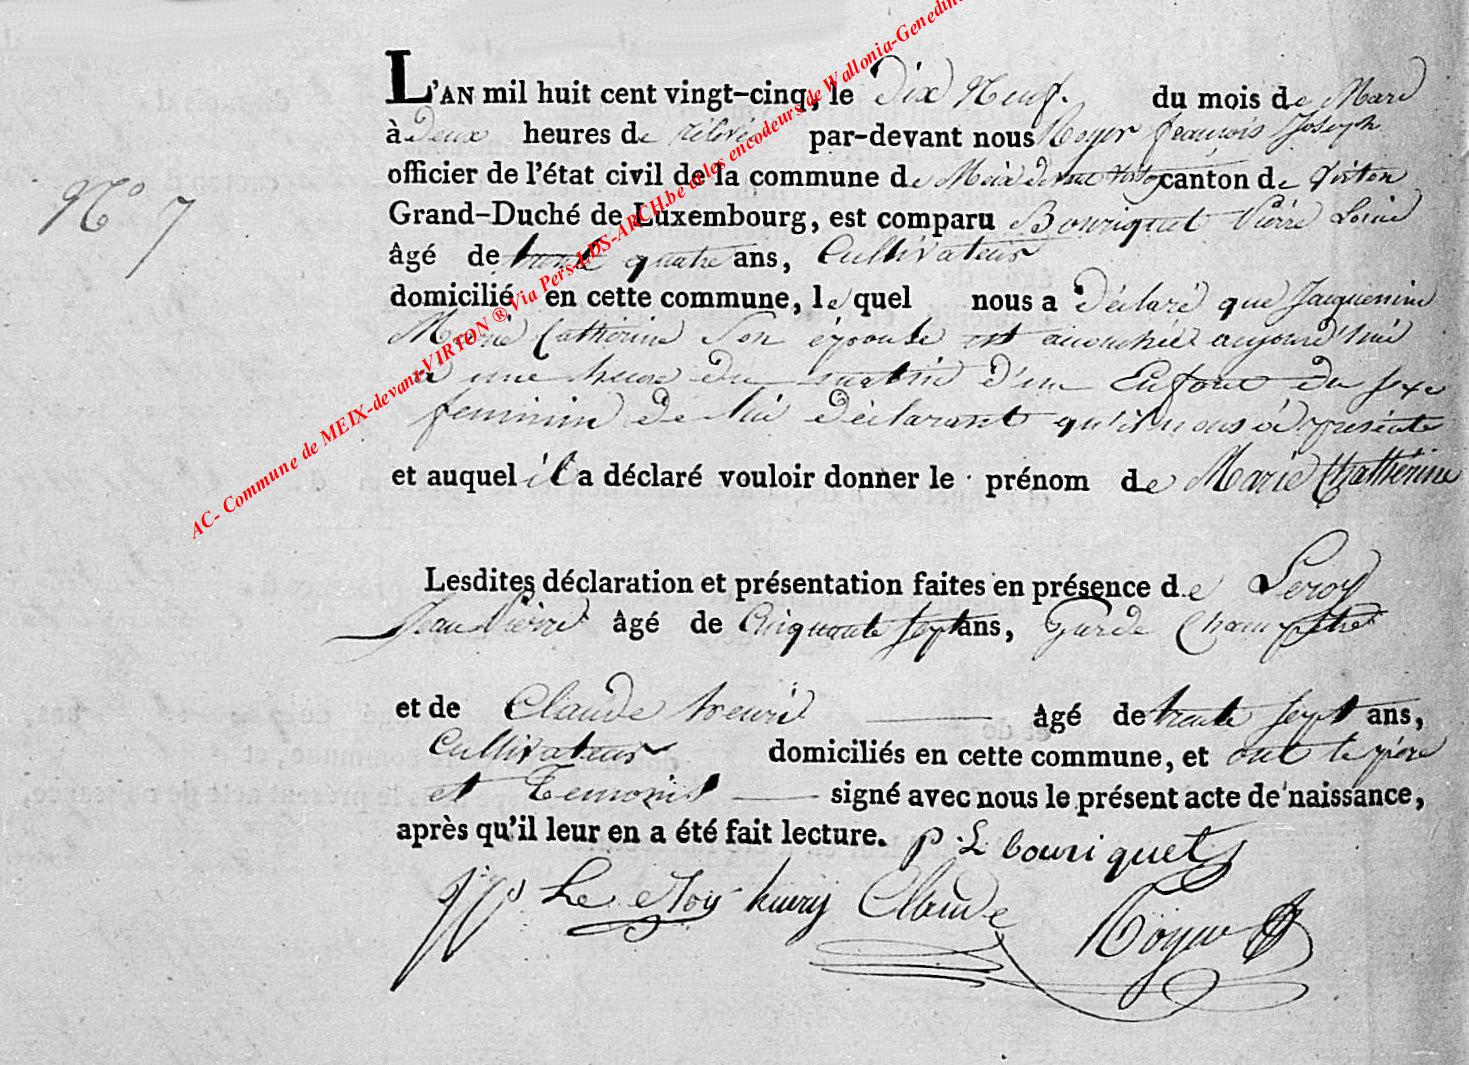 L'AN mil huit cent vingt-cinq, le Dix Neuf du mois de Mars
à Deux heures de rélévée par-devant nous Royer francois Joseph
officier de l'état civil de la commune de Meix devant virton canton de Virton
Grand-Duché de Luxembourg, est comparu Bouriquet Pierre Louis
âgé de trente quatre ans, Cultivateur
domicilié en cette commune, lequel nous a Déclaré que Jacquemin
Marie Catherine son épouse est accouchée aujourd'hui
a une heure du matin d'un Enfant du sexe
feminin de lui déclarant qu'il nous à présenté
et auquel il a déclaré vouloir donner le prénom de Marie Chathérine
N° 7
Lesdites déclaration et présentation faites en présence de Leroy
Jean Pierre âgé de Cinquante sept ans, Garde Champetre
et de Claude henri âgé de trente sept ans,
Cultivateur domiciliés en cette commune, et ont le père
et Temoins signé avec nous le présent acte de naissance,
après qu'il leur en a été fait lecture. P. L bouriquet
Le Roy henry Claude Royer
AC- Commune de MEIX-devant-VIRTON ® Via Pers-LDS-ARCH.be et les encodeurs de Wallonia-Genedin